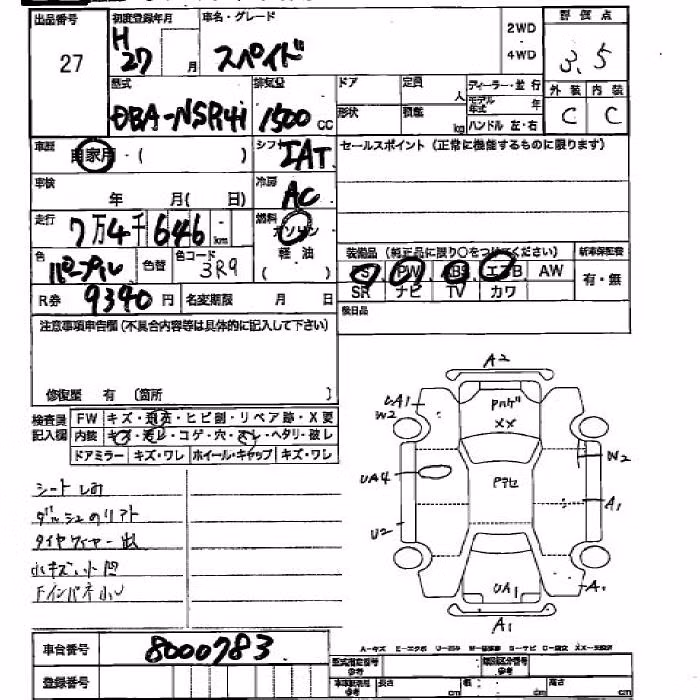 出品番号
27
初度登録年月
H
27 月
車名・グレード
スペイド
2WD
4WD
評価点
3.5
外装 内装
C C
型式
DBA-NSP141
排気量
1500 cc
ドア
形状
定員
人
積載
kg
ディーラー・並行
モデル年式 年
ハンドル 左・右
車歴
自家用・( )
シフト
IAT
セールスポイント (正常に機能するものに限ります)
車検
年 月( 日)
冷房
AC
走行
7万4千646 km
燃料
ガソリン
軽油
( )
色
パープル
色替
色コード
3R9
装備品 (純正品に限り○をつけてください)
PS PW ABS エアB AW
SR ナビ TV カワ
新車保証書
有・無
R券
9390円
名変期限 月 日
後日品
注意事項申告欄(不具合内容等は具体的に記入して下さい)
修復歴 有 〔箇所 〕
検査員
記入欄
FW キズ・飛石・ヒビ割・リペア跡・X要
内装 キズ・汚レ・コゲ・穴・スレ・ヘタリ・破レ
ドアミラー キズ・ワレ ホイール・キャップ キズ・ワレ
シートしみ
タイヤワイヤー出
小キズ、小凹
A2
UA1
W2
Pハゲ
XX
UA4
Pヲセ
W2
A1
U2
UA1
A1
A1
車台番号
8000783
登録番号
A-キズ E-エクボ U-凹み
型式指定番号
参考
類別区分番号
参考
車車記載用
参考
長さ cm
幅 cm
高さ cm